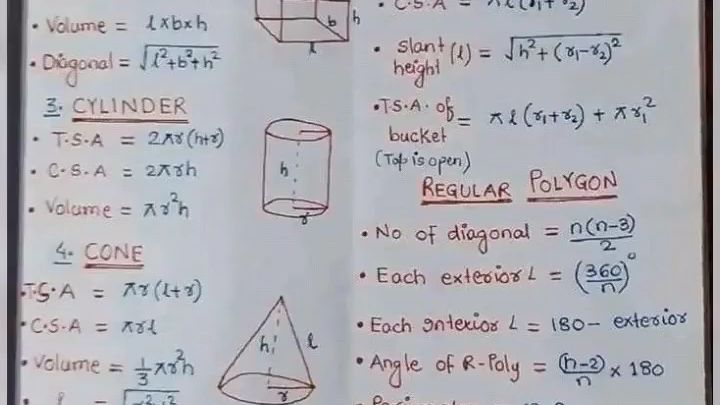 • Volume = l×b×h
• Diagonal = √l²+b²+h²
b
h
l
3. CYLINDER
• T.S.A = 2πr(h+r)
• C.S.A = 2πrh
• Volume = πr²h
h
r
4. CONE
•T.S.A = πr(l+r)
•C.S.A = πrl
•Volume = 1/3 πr²h
h
l
r
• C.S.A = πl(r₁+r₂)
• Slant height (l) = √h²+(r₁-r₂)²
•T.S.A. of bucket = πl(r₁+r₂) + πr₁²
(Top is open)
REGULAR POLYGON
•No of diagonal = n(n-3)/2
•Each exterior L = (360/n)°
•Each Interior L = 180- exterior
•Angle of R-Poly = (n-2)/n × 180